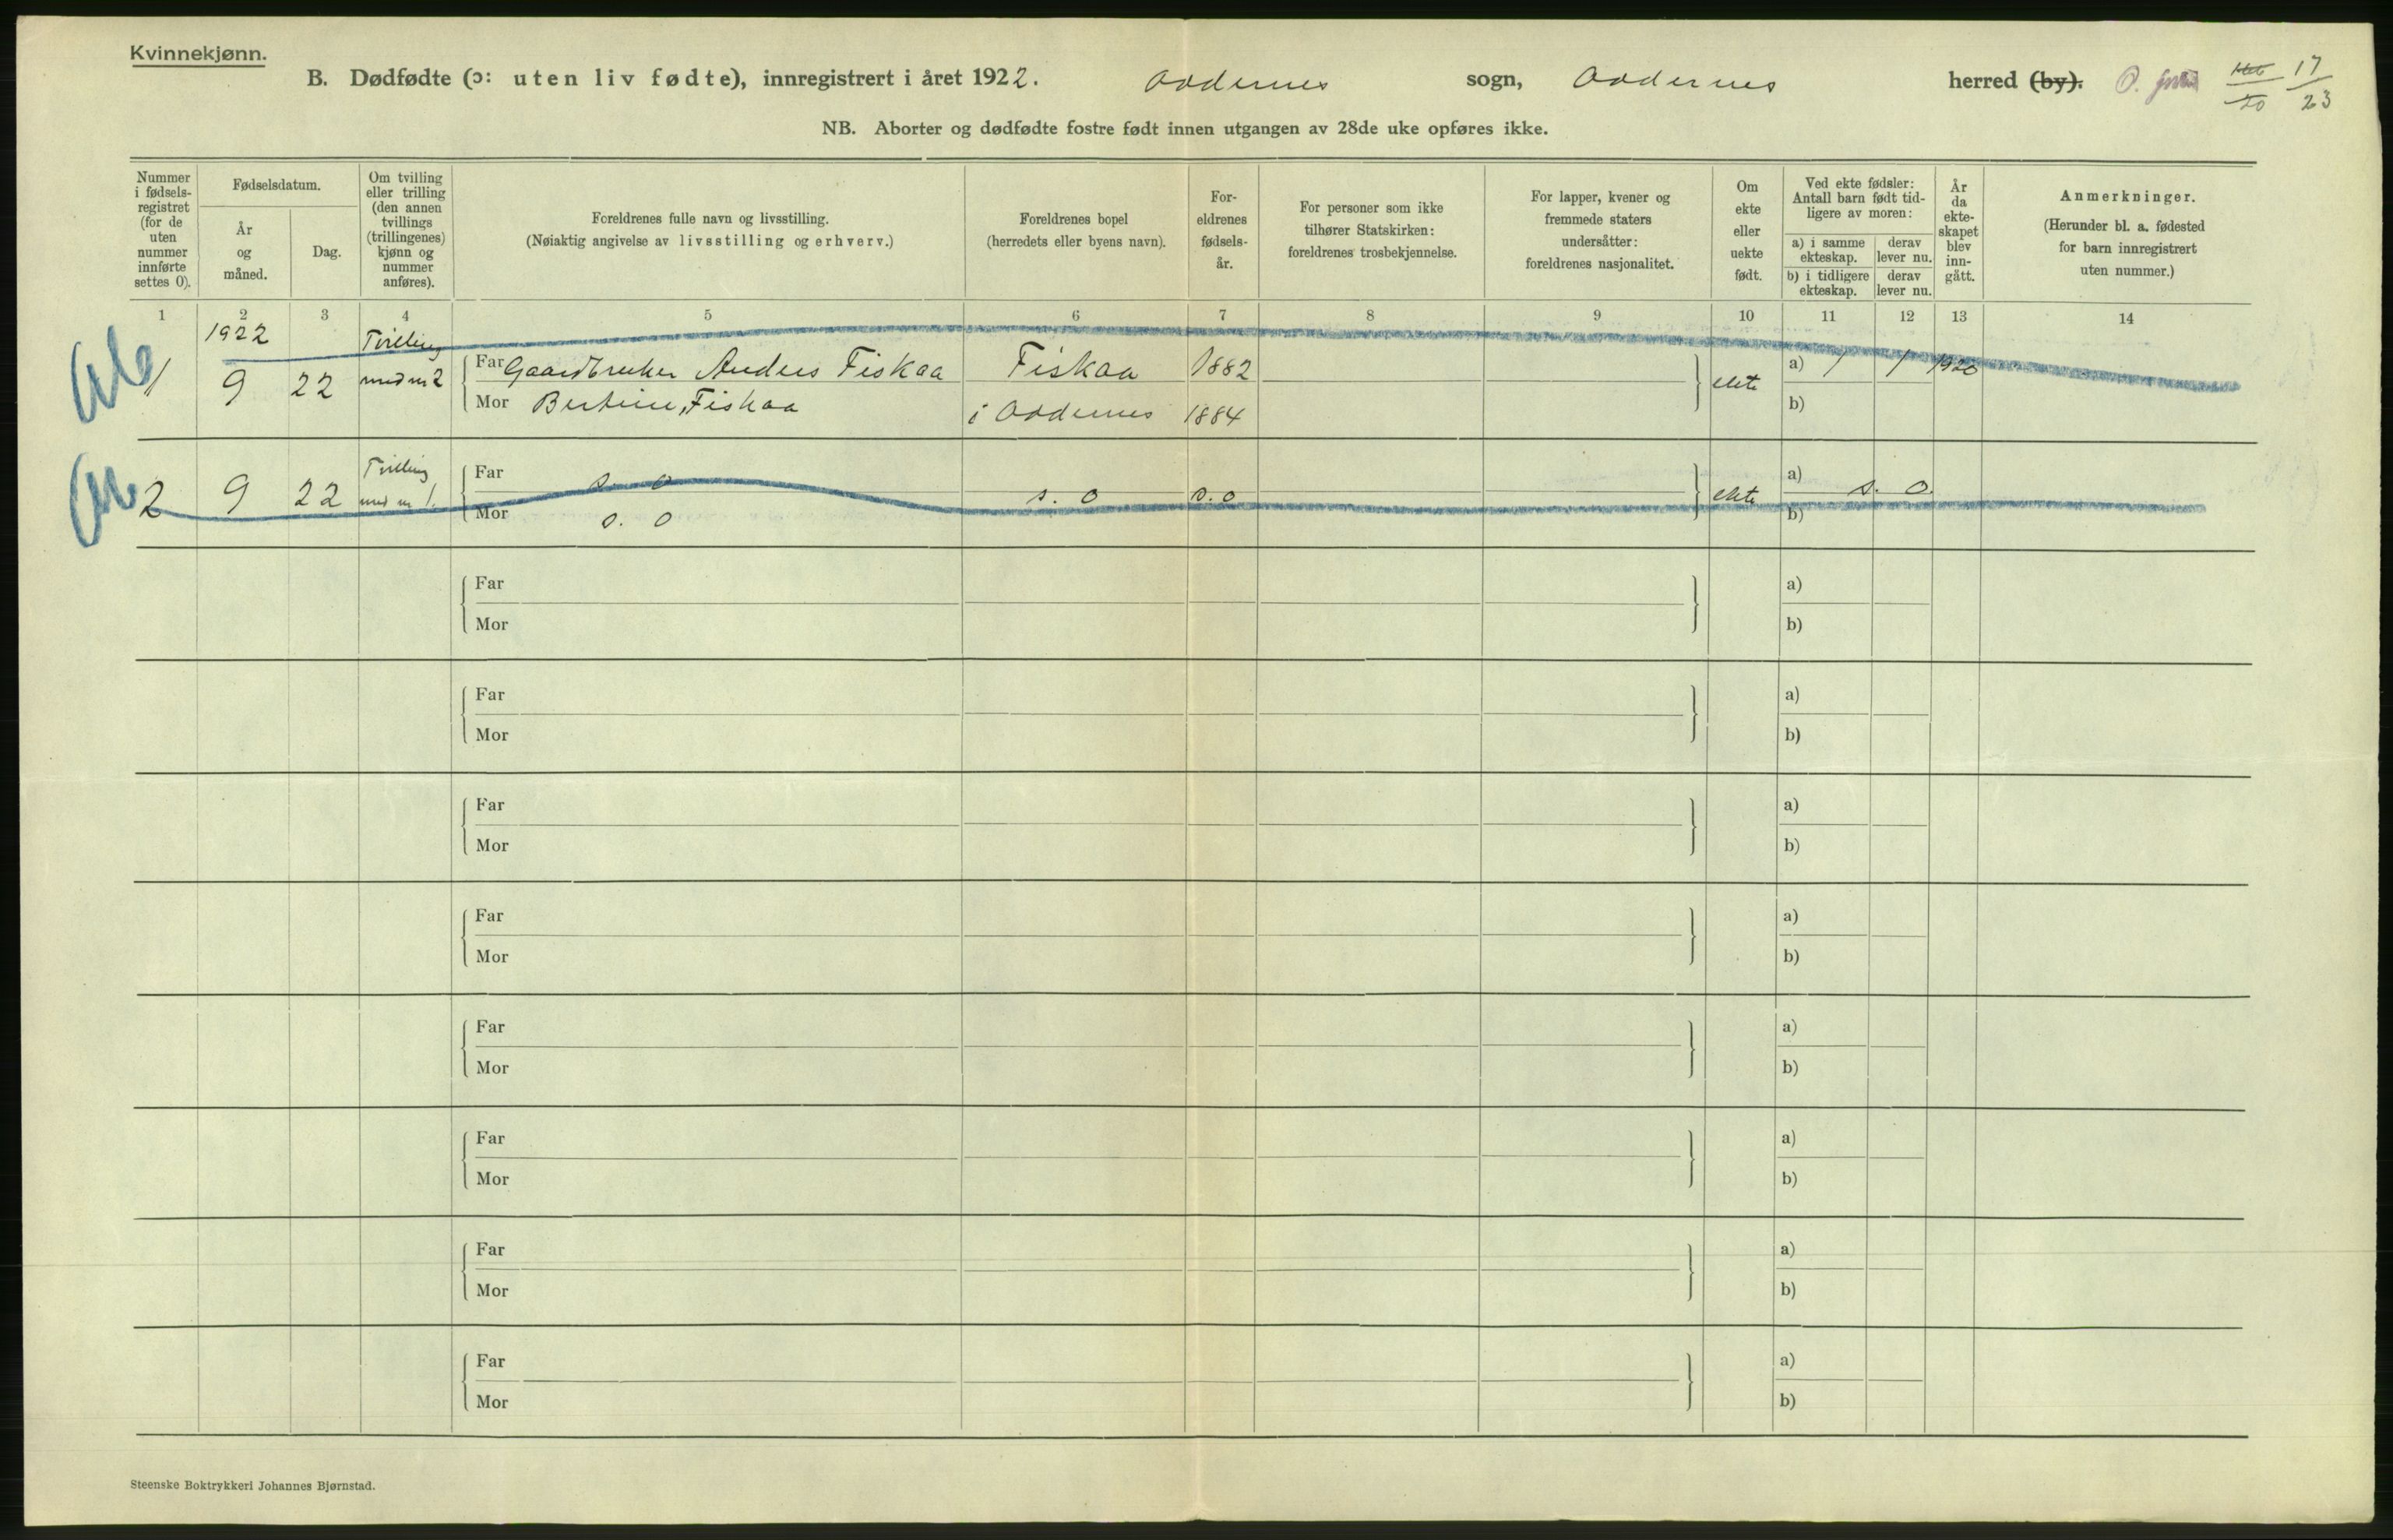 Kvinnekjønn.
B. Dødfødte (ɔ: uten liv fødte), innregistrert i året 1922. Oddernes sogn, Oddernes herred (by). 17/23
NB. Aborter og dødfødte fostre født innen utgangen av 28de uke opføres ikke.
Nummer i fødsels-registret (for de uten nummer innførte settes 0).
Fødselsdatum.
År og måned.
Dag.
Om tvilling eller trilling (den annen tvillings (trillingenes) kjønn og nummer anføres).
Foreldrenes fulle navn og livsstilling.
(Nøiaktig angivelse av livsstilling og erhverv.)
Foreldrenes bopel
(herredets eller byens navn).
For-eldrenes fødsels-år.
For personer som ikke tilhører Statskirken: foreldrenes trosbekjennelse.
For lapper, kvener og fremmede staters undersåtter: foreldrenes nasjonalitet.
Om ekte eller uekte født.
Ved ekte fødsler: Antall barn født tid-ligere av moren:
a) i samme ekteskap.
derav lever nu.
b) i tidligere ekteskap.
derav lever nu.
År da ekte-skapet blev inn-gått.
Anmerkninger.
(Herunder bl. a. fødested for barn innregistrert uten nummer.)
1 2 3 4 5 6 7 8 9 10 11 12 13 14
1922 Tvilling
1 9 22 med nr 2 Far Gaardbruker Anders Fiskaa Fiskaa 1882 ekte a) 1 1 1920
Mor Bertine Fiskaa i Oddernes 1884 b)
Tvilling
2 9 22 med nr 1. Far s. o s. o s. o ekte a) s. o.
Mor s. o b)
Far a)
Mor b)
Far a)
Mor b)
Far a)
Mor b)
Far a)
Mor b)
Far a)
Mor b)
Far a)
Mor b)
Far a)
Mor b)
Far a)
Mor b)
Steenske Boktrykkeri Johannes Bjørnstad.